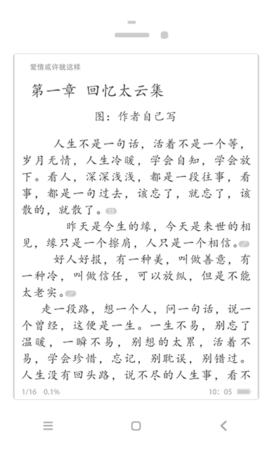 爱情或许就这样
第一章 回忆太云集
图：作者自己写
人生不是一句话，活着不是一个等，
岁月无情，人生冷暖，学会自知，学会放
下。看人，深深浅浅，都是一段往事，看
事，都是一句过去，该忘了，就忘了，该
散的，就散了。
昨天是今生的缘，今天是来世的相
见，缘只是一个擦肩，人只是一个相信。
好人好报，有一种美，叫做善意，有
一种冷，叫做信任，可以放纵，但是不能
太老实。
走一段路，想一个人，问一句话，说一
个曾经，这便是一生。一生不易，别忘了
温暖，一瞬不易，别想的太累，活着不
易，学会珍惜，忘记，别耽误，别错过。
人生没有回头路，说不尽的人生事，看不
1/16 0.1%
10：05